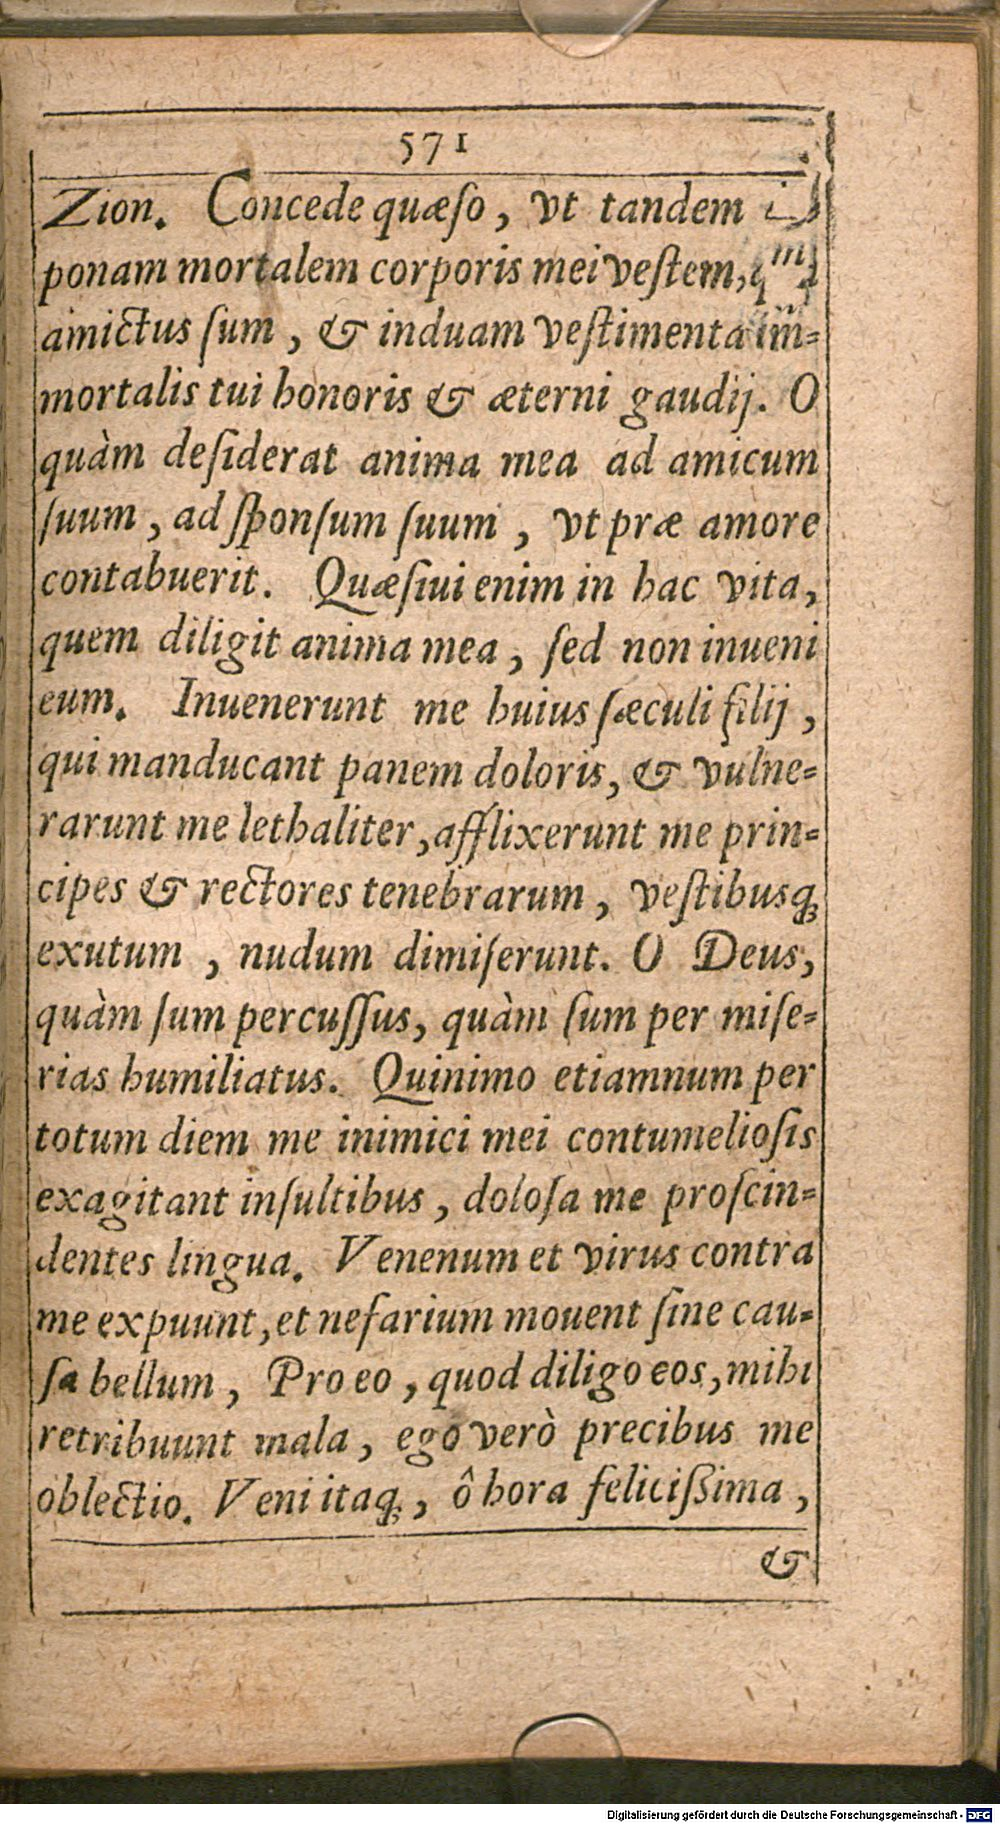 571
Zion. Concede quæſo, vt tandem
ponam mortalem corporis mei veſtem,
amictus ſum, & induam veſtimenta im-
mortalis tui honoris & æterni gaudij. O
quàm deſiderat anima mea ad amicum
ſuum, ad ſponſum ſuum, vt præ amore
contabuerit. Quæſiui enim in hac vita,
quem diligit anima mea, ſed non inueni
eum. Inuenerunt me huius ſæculi filij,
qui manducant panem doloris, & vulne-
rarunt me lethaliter, afflixerunt me prin-
cipes & rectores tenebrarum, veſtibusq́;
exutum, nudum dimiſerunt. O Deus,
quàm ſum percuſſus, quàm ſum per miſe-
rias humiliatus. Quinimo etiamnum per
totum diem me inimici mei contumelioſis
exagitant inſultibus, doloſa me proſcin-
dentes lingua. Venenum et virus contra
me expuunt, et nefarium mouent ſine cau-
ſa bellum, Pro eo, quod diligo eos, mihi
retribuunt mala, ego verò precibus me
oblectio. Veni itaq;, ô hora feliciſsima,
&
Digitalisierung gefördert durch die Deutsche Forschungsgemeinschaft - DFG